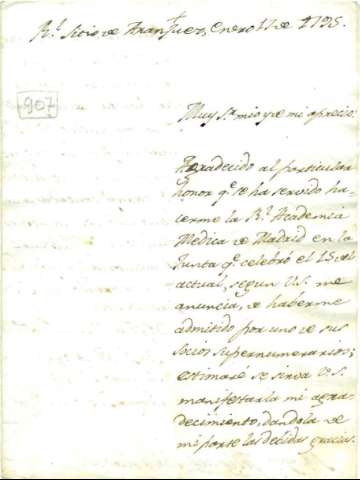 R.l Sitio de Aranjuez, Enero 17 de 1795.
907
Muy S.r mio y de mi aprecio:
Agradecido al particular
honor q.e se ha servido ha-
cerme la R.l Academia
Medica de Madrid en la
Junta q.e celebró el 15 del
actual, segun V.S. me
anuncia, de haberme
admitido por uno de sus
Socios supernumerarios;
estimaré se sirva V.S.
manifestarla mi agra-
decimiento, dandola de
mi parte las debidas gracias.